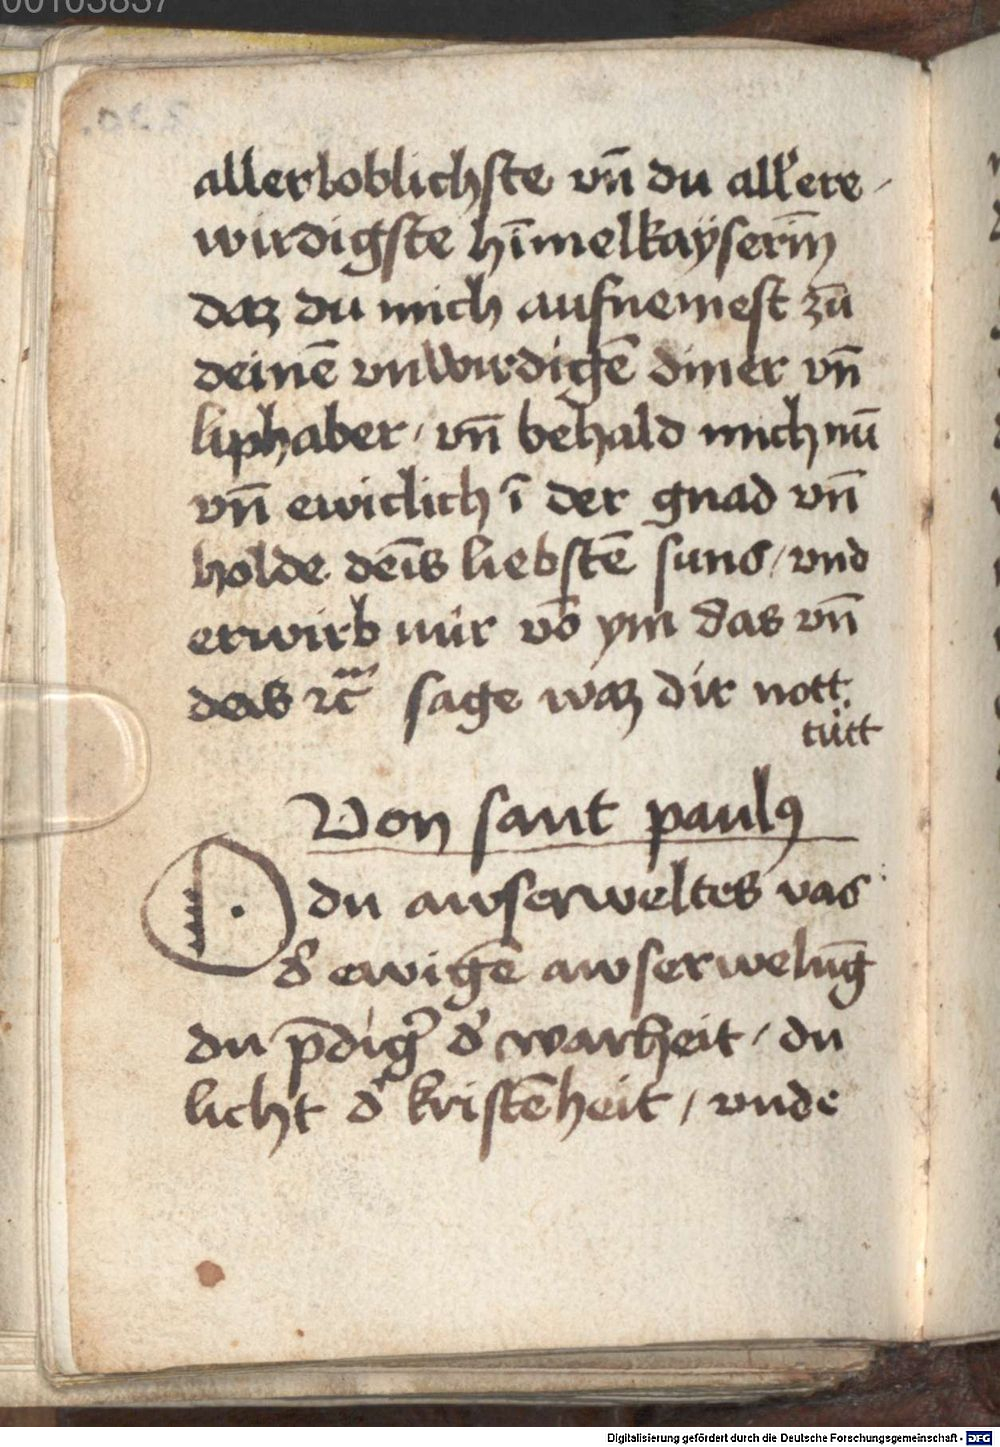 00103837
allerloblichste vn̄ du all'ere
wirdigste hīmelkaÿserin̄
daz du mich aufnemest zū
deinē vnwirdigē diner vn̄
liphaber / vn̄ behald mich nū
vn̄ ewiclich ī der gnad vn̄
holde deīs liebstē suns / vnd
erwirb mir vō ym das vn̄
das ⁊c̄ sage waz dir nott
tütt
Von sant paulꝰ
O du awserweltes vas
d' ewigē awserwelūg
du p̄dig' d' warheit / du
licht d' kristēheit / vnde
Digitalisierung gefördert durch die Deutsche Forschungsgemeinschaft - DFG